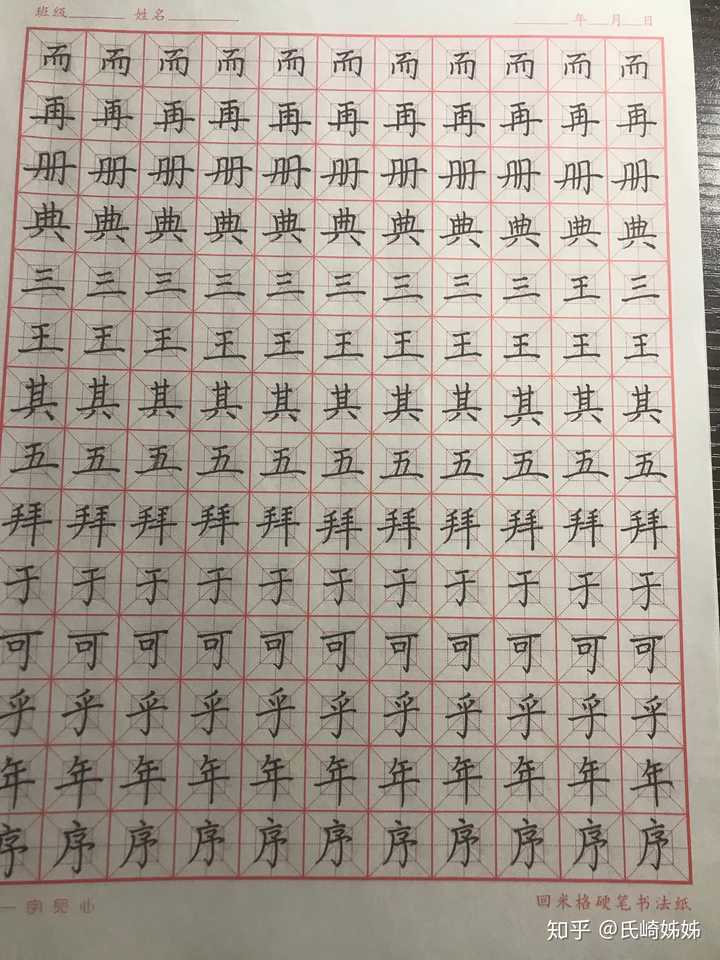 班级 姓名 年 月 日
而 而 而 而 而 而 而 而 而 而 而
再 再 再 再 再 再 再 再 再 再 再
册 册 册 册 册 册 册 册 册 册 册
典 典 典 典 典 典 典 典 典 典 典
三 三 三 三 三 三 三 三 三 王 三
王 王 王 王 王 王 王 王 王 王 王
其 其 其 其 其 其 其 其 其 其 其
五 五 五 五 五 五 五 五 五 五 五
拜 拜 拜 拜 拜 拜 拜 拜 拜 拜 拜
于 于 于 于 于 于 于 于 于 于 于
可 可 可 可 可 可 可 可 可 可 可
乎 乎 乎 乎 乎 乎 乎 乎 乎 乎 乎
年 年 年 年 年 年 年 年 年 年 年
序 序 序 序 序 序 序 序 序 序 序
回米格硬笔书法纸
知乎 @氏崎姊姊